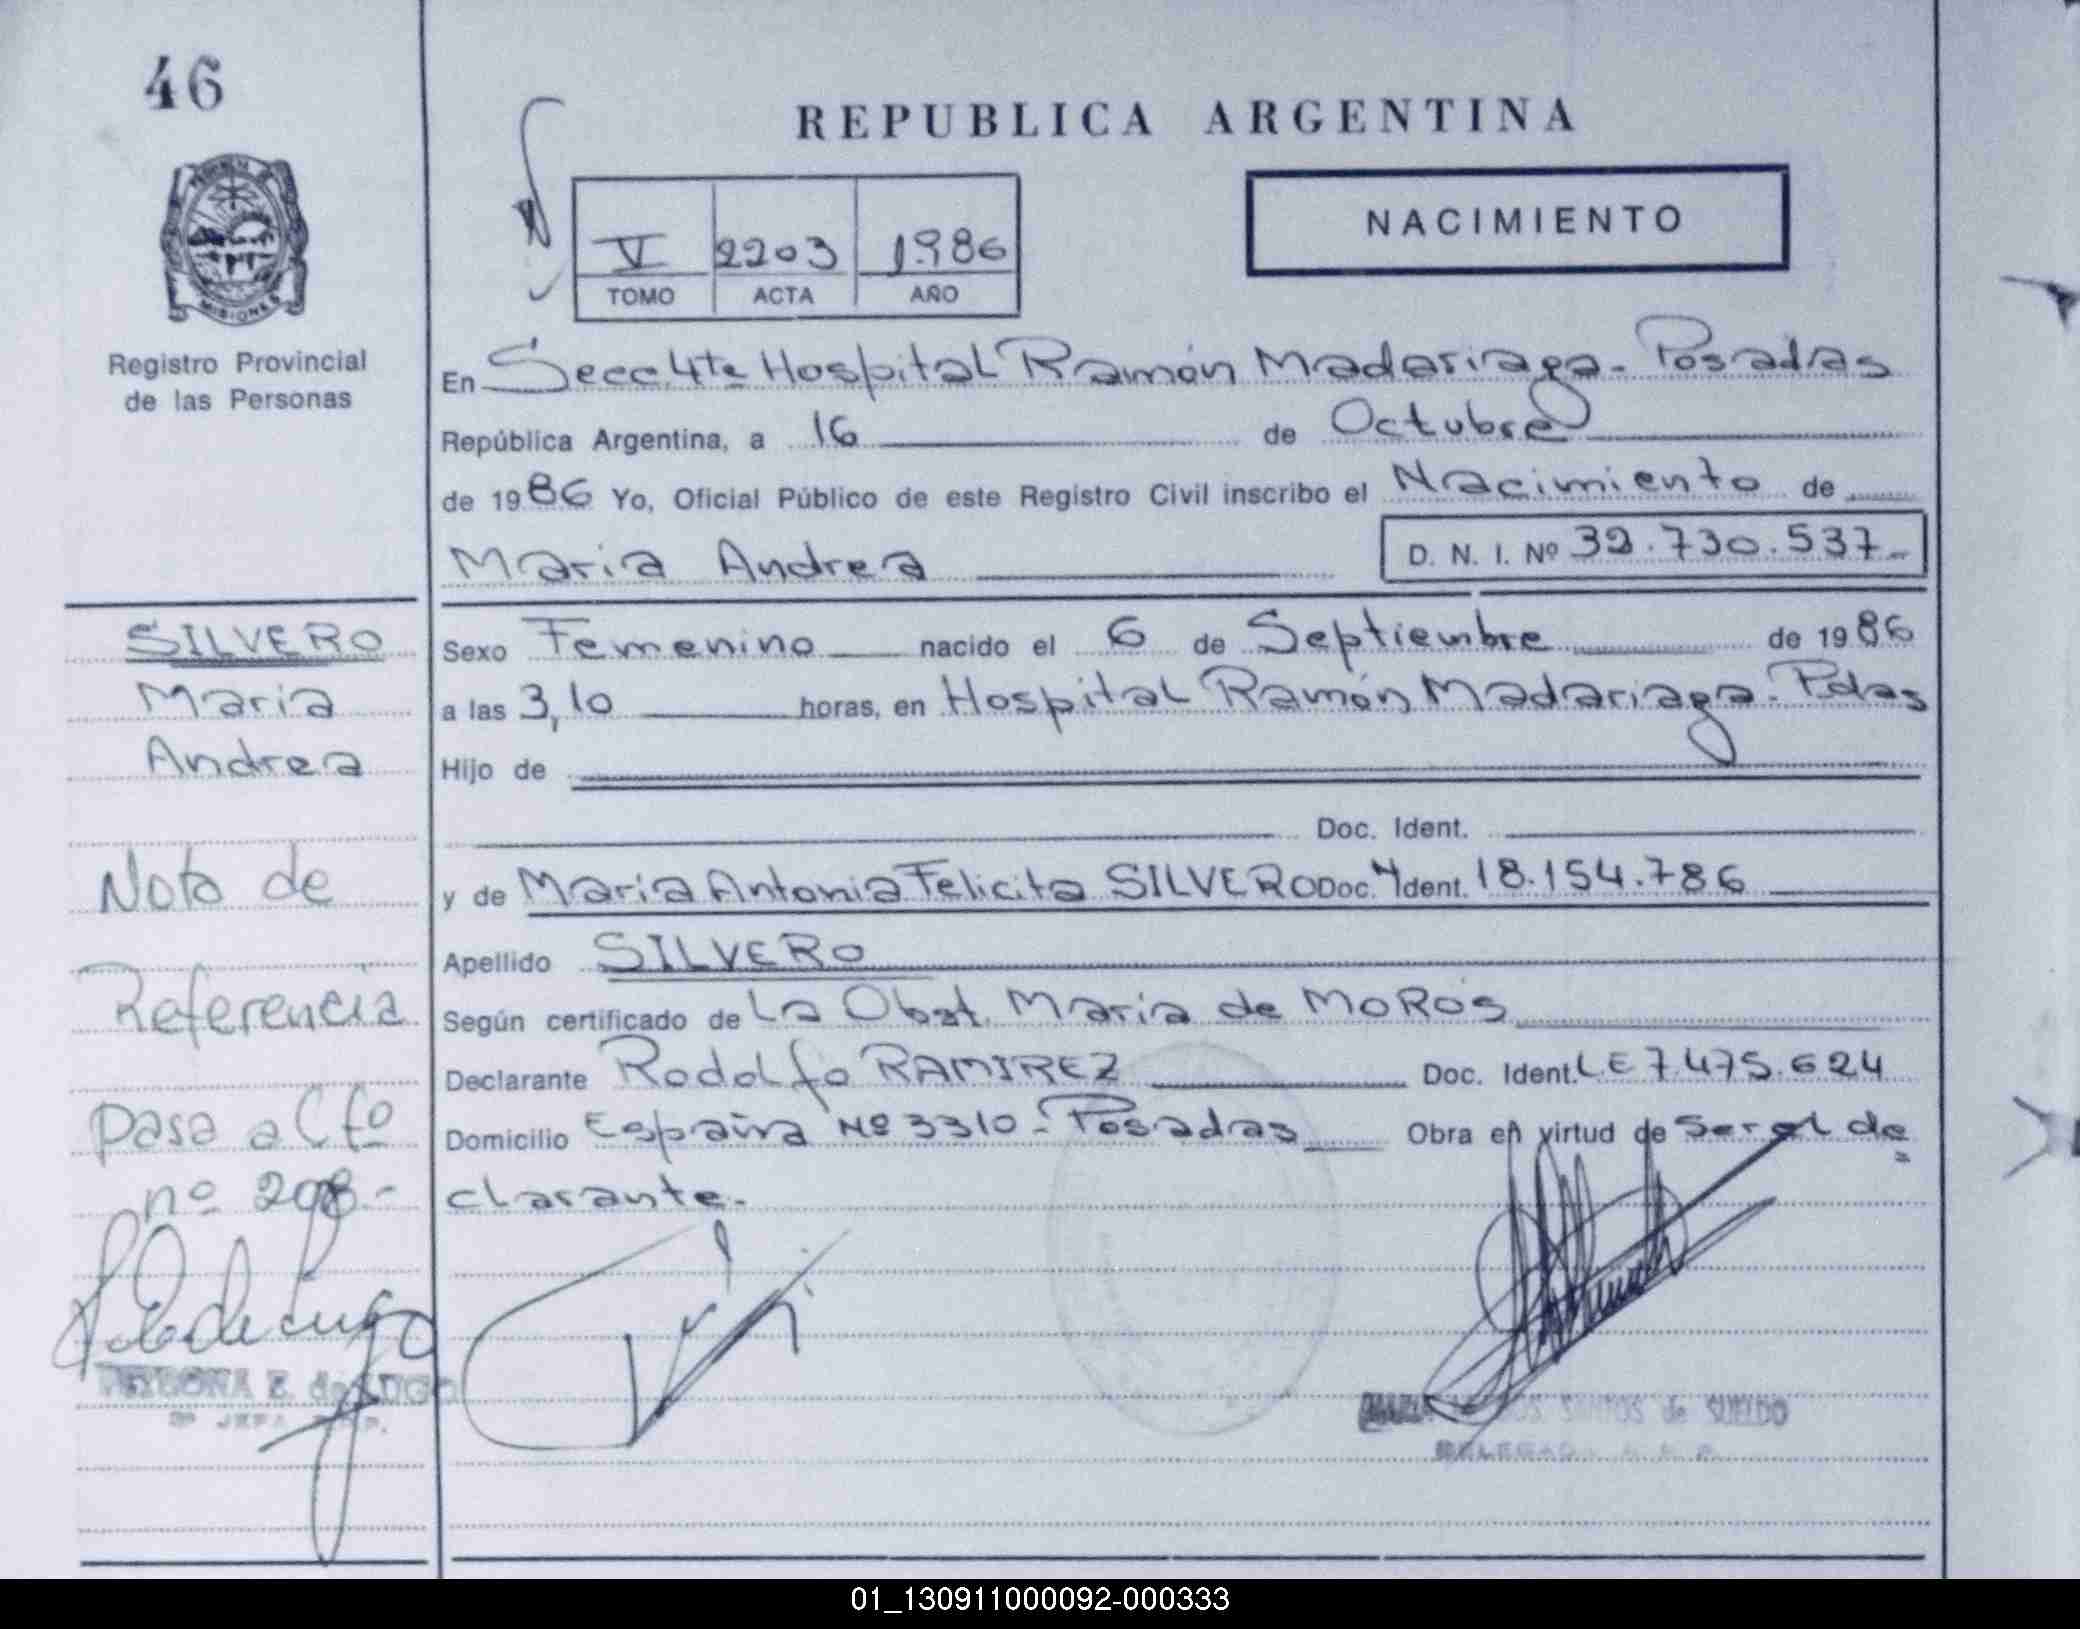 46
REPUBLICA ARGENTINA
NACIMIENTO
V 2203 1.986
TOMO ACTA AÑO
MISIONES
Registro Provincial
de las Personas
En Secc. 4ta Hospital Ramón Madariaga - Posadas
República Argentina, a 16 de Octubre
de 1986 Yo, Oficial Público de este Registro Civil inscribo el Nacimiento de
Maria Andrea
D. N. I. Nº 32.730.537
SILVERO
Maria
Andrea
Sexo Femenino nacido el 6 de Septiembre de 1986
a las 3,10 horas, en Hospital Ramón Madariaga - Pdas
Hijo de
Doc. Ident.
y de Maria Antonia Felicita SILVERO Doc. Ident. 18.154.786
Apellido SILVERO
Según certificado de La Obst. Maria de MOROS
Declarante Rodolfo RAMIREZ Doc. Ident. LE 7.475.624
Domicilio España Nº 3310 - Posadas Obra en virtud de Ser el de
clarante.
Nota de
Referencia
pasa a Cfº
nº 208.-
E. de LUGO
JEFA
SANTOS de SUELDO
01_130911000092-000333